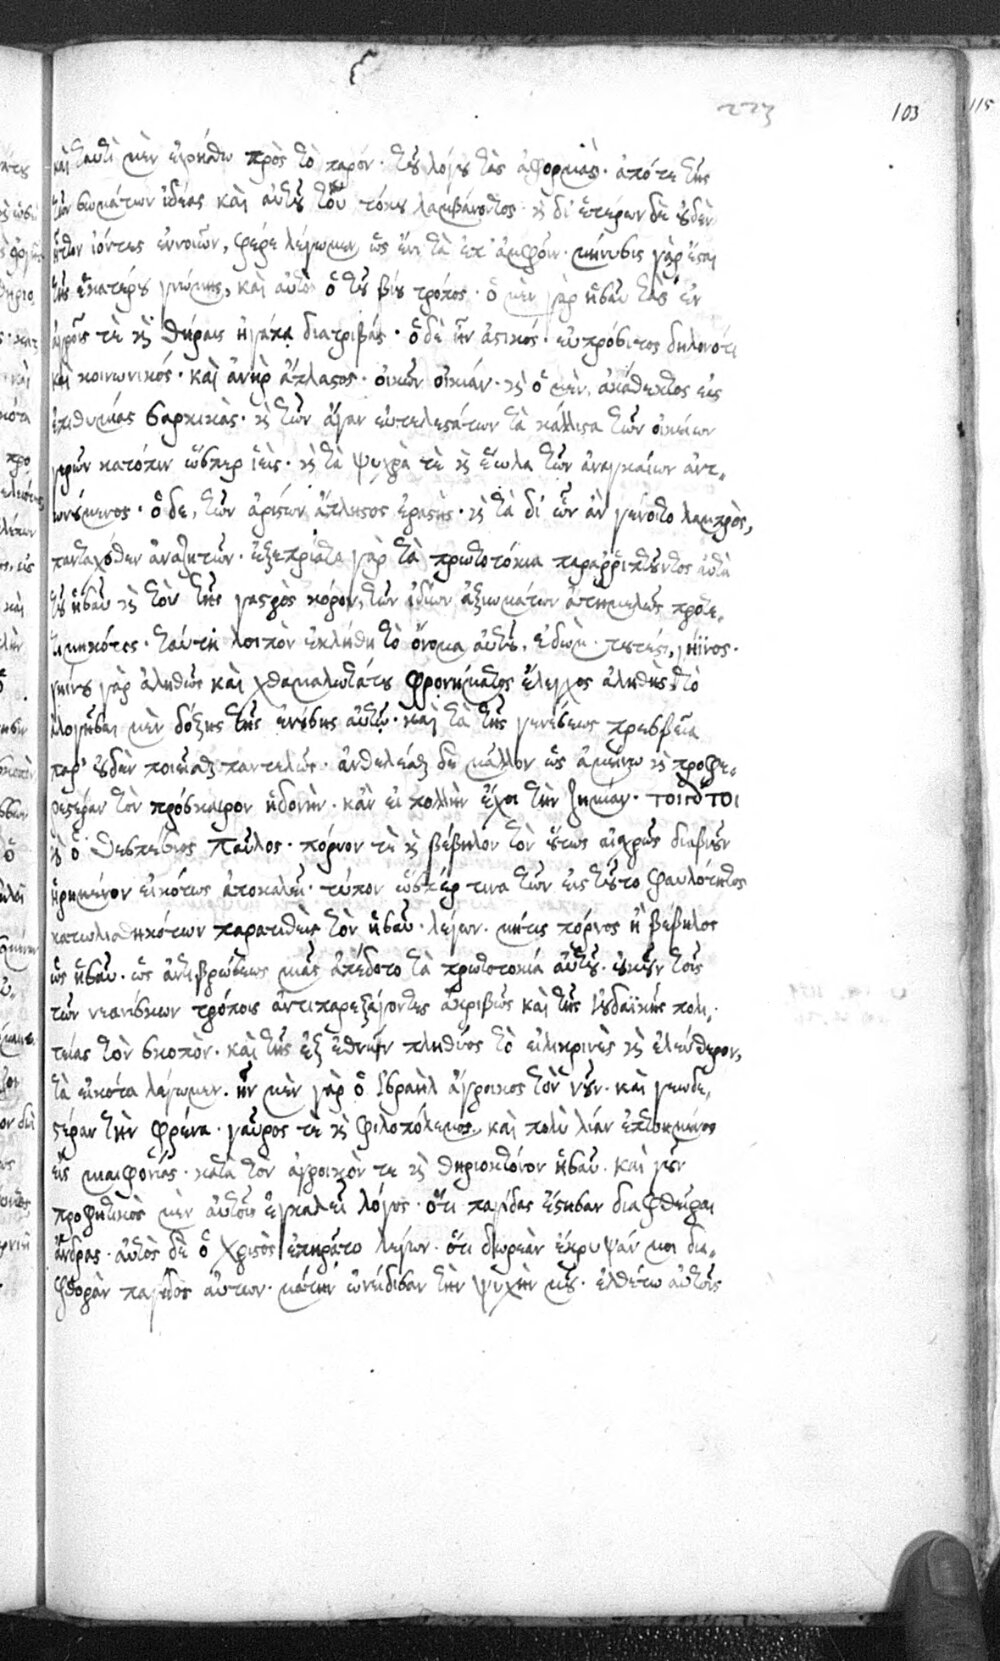 103
καὶ ταυτὶ μὲν εἰρήσθω πρὸς τὸ παρόν · τοῦ λόγου τὰς ἀφορμὰς · ἀπό τε τῆς
τῶν σωμάτων ἰδέας καὶ αὐτοῦ τοῦ τόκου λαμβάνοντος · καὶ δι' ἑτέρων δὲ οὐδὲν
ἧττον ἰόντες ἐννοιῶν, φέρε λέγωμεν ὡς ἔνι τὰ ἐπ' ἀμφοῖν · μήνυσις γὰρ ἔσται
τῆς ἑκατέρου γνώμης, καὶ αὐτὸς ὁ τοῦ βίου τρόπος · ὁ μὲν γὰρ ἡσαῦ τὰς ἐν
ἀγροῖς τὲ καὶ θήραις ἠγάπα διατριβάς · ὁ δὲ ἦν ἀστικός · εὐπρόσιτος δηλονότι
καὶ κοινωνικός · καὶ ἀνὴρ ἄπλαστος · οἰκῶν οἰκίαν · καὶ ὁ μὲν, ἀκάθεκτος εἰς
ἐπιθυμίας σαρκικὰς · καὶ τῶν ἄγαν εὐτελεστάτων τὰ κάλλιστα τῶν οἰκείων
γερῶν κατόπιν ὥσπερ ἱεὶς · καὶ τὰ ψυχρὰ τὲ καὶ ἕωλα τῶν ἀναγκαίων ἀντ-
ωνούμενος · ὁ δε, τῶν ἀρίστων ἄπληστος ἐραστὴς · καὶ τὰ δι' ὧν ἂν γένοιτο λαμπρὸς,
πανταχόθεν ἀναζητῶν · ἐξεπρίατο γὰρ τὰ πρωτοτόκια παραρριπτοῦντος αὐτὰ
τοῦ ἡσαῦ καὶ τὸν τῆς γαστρὸς κόρον, τῶν ἰδίων ἀξιωμάτων ἀτημελῶς προτε-
τιμηκότος · ταύτῃ λοιπὸν ἐκλήθη τὸ ὄνομα αὐτοῦ, ἐδώμ · τουτέστι, γήϊνος ·
γηίνου γὰρ ἀληθῶς καὶ χθαμαλωτάτου φρονήματος ἔλεγχος ἀληθὴς τὸ
ἀλογῆσαι μὲν δόξης τῆς ἐνούσης αὐτῷ · καὶ τὰ τῆς γενέσεως πρεσβεῖα
παρ' οὐδὲν ποιεῖσθαι παντελῶς · ἀνθελέσθαι δὲ μᾶλλον ὡς ἀμείνω καὶ προφε-
ρεστέραν τὸν πρόσκαιρον ἡδονὴν · κἂν εἰ πολλὴν ἔχοι τὴν ζημίαν · τοιοῦτοι
καὶ ὁ θεσπέσιος Παῦλος · πόρνον τὲ καὶ βέβηλον τὸν οὕτως αἰσχρῶς διαβιοῦν
ᾑρημένον εἰκότως ἀποκαλεῖ · τύπον ὥσπερ τινα τῶν εἰς τοῦτο φαυλότητος
κατωλισθηκότων παρατιθεὶς τὸν ἡσαῦ · λέγων · μήτις πόρνος ἢ βέβηλος
ὡς ἡσαῦ · ὡς ἀντὶ βρώσεως μιᾶς ἀπέδοτο τὰ πρωτοτοκία αὐτοῦ · οὐκοῦν τοῖς
τῶν νεανίσκων τρόποις ἀντιπαρεξάγοντες ἀκριβῶς καὶ τῆς ἰουδαϊκῆς πολι-
τείας τὸν σκοπὸν · καὶ τῆς ἐξ ἐθνῶν πληθύος τὸ εἰλικρινὲς καὶ ἐλεύθερον,
τὰ εἰκότα λέγωμεν · ἦν μὲν γὰρ ὁ ἰσραὴλ ἄγροικος τὸν νοῦν · καὶ γεωδε-
στέραν τὴν φρένα · γαῦρος τὲ καὶ φιλοπόλεμος, καὶ πολὺ λίαν ἐπτοημένος
εἰς μιαιφονίας · κατὰ τὸν ἀγροικόν τε καὶ θηριοκτόνον ἡσαῦ · καὶ γοῦν
προφητικὸς μὲν αὐτοῖς ἐγκαλεῖ λόγος · ὅτι παγίδας ἔστησαν διαφθεῖραι
ἄνδρας · αὐτὸς δὲ ὁ χριστὸς ἐπηρᾶτο λέγων · ὅτι δωρεὰν ἔκρυψάν μοι δια-
φθορὰν παγίδος αὐτων · μάτην ὠνείδισαν τὴν ψυχήν μου · ἐλθέτω αὐτοῖς
115